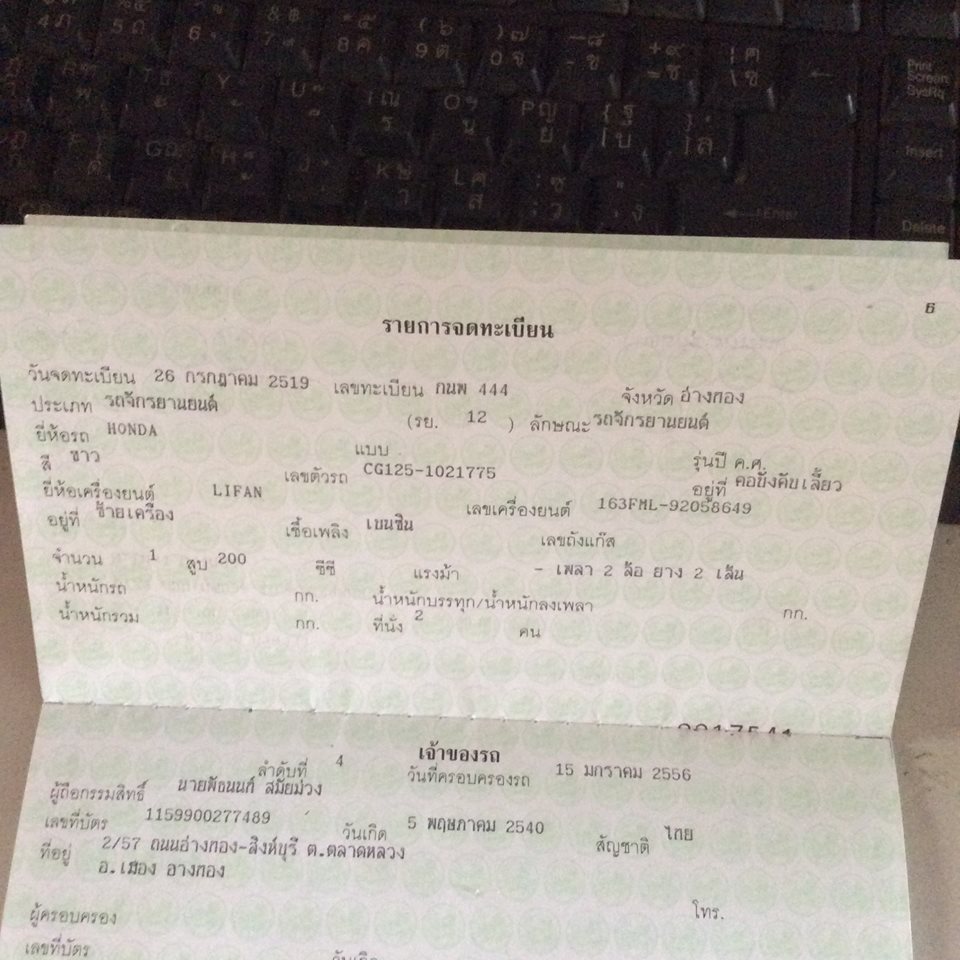 Print
Screen
SysRq
Insert
Enter
Delete
6
รายการจดทะเบียน
วันจดทะเบียน 26 กรกฎาคม 2519 เลขทะเบียน กนพ 444 จังหวัด อ่างทอง
ประเภท รถจักรยานยนต์ (รย. 12 ) ลักษณะ รถจักรยานยนต์
ยี่ห้อรถ HONDA แบบ รุ่นปี ค.ศ.
สี ขาว เลขตัวรถ CG125-1021775 อยู่ที่ คอบังคับเลี้ยว
ยี่ห้อเครื่องยนต์ LIFAN เลขเครื่องยนต์ 163FML-92058649
อยู่ที่ ซ้ายเครื่อง เชื้อเพลิง เบนซิน เลขถังแก๊ส
จำนวน 1 สูบ 200 ซีซี แรงม้า - เพลา 2 ล้อ ยาง 2 เส้น
น้ำหนักรถ กก. น้ำหนักบรรทุก/น้ำหนักลงเพลา กก.
น้ำหนักรวม กก. ที่นั่ง 2 คน
เจ้าของรถ
ลำดับที่ 4 วันที่ครอบครองรถ 15 มกราคม 2556
ผู้ถือกรรมสิทธิ์ นายพัธนนท์ สมัยม่วง
เลขที่บัตร 1159900277489 วันเกิด 5 พฤษภาคม 2540 สัญชาติ ไทย
ที่อยู่ 2/57 ถนนอ่างทอง-สิงห์บุรี ต.ตลาดหลวง
อ.เมือง อ่างทอง
ผู้ครอบครอง โทร.
เลขที่บัตร วันเกิด